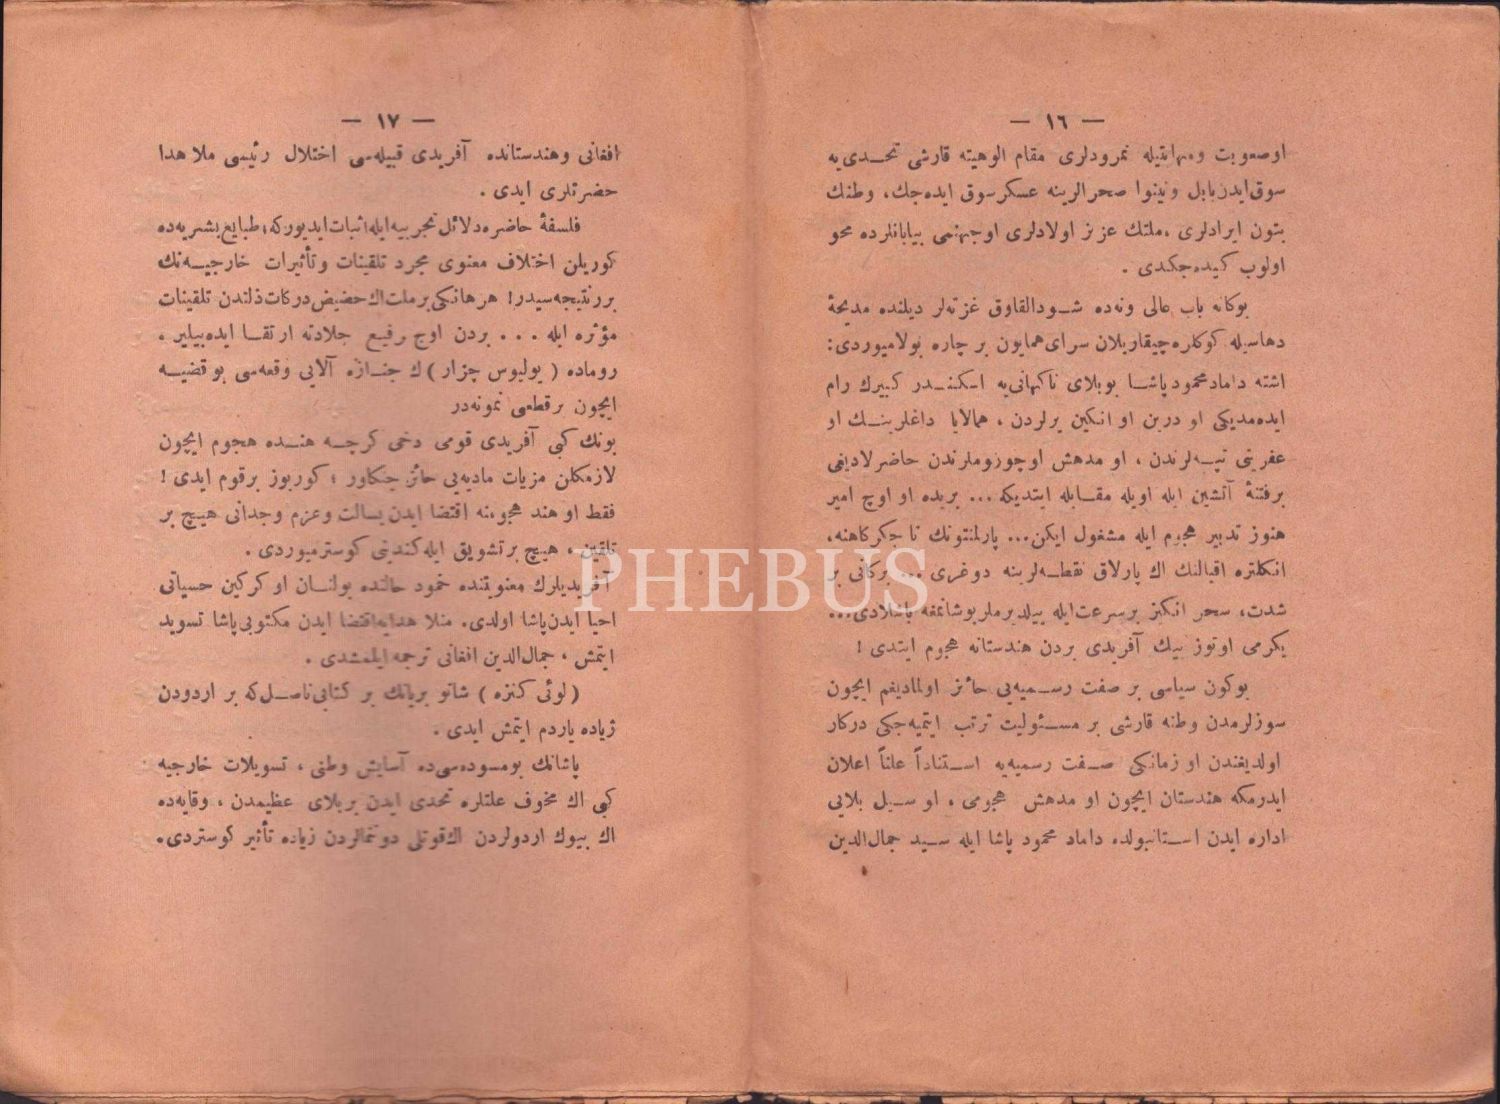 — ١٦ —
اوصعوبت ومهابتیله نمرودلری مقام الوهیته قارشی تحـدی‌یه
سوق ایدن بابل ونینوا صحرالرینه عسکر سوق ایده‌جك، وطنك
بتون ایرادلری، ملتك عزیز اولادلری اوجهنمی بیابانلرده محو
اولوب کیده‌جکدی .
بوکانه باب عالی ونه‌ده شـودالقاوق غزته‌لر دیلنده مدیحهٔ
دهاسیله کوکلره چیقاریلان سرای همایون بر چاره بولامیوردی:
اشته داماد محمود پاشـا بوبلای ناکهانی‌یه اسکنـدر کبیرك رام
ایده‌مدیکی او درین او انکین یرلردن ، همالایا داغلرینـك او
عفریتی تپـه‌لرندن ، او مدهش اوچوروملرندن حاضرلادیغی
برفتنهٔ آتشین ایله اویله مقـابله ایتدیکه... بریده او اوچ امیر
هنوز تدبیر هجوم ایله مشغول ایکن... پارلمنتونك تا جکرکاهنه،
انکلتره اقبالنك اك پارلاق نقطـه‌لرینه دوغری ... برکانی بر
شدت، سحر انکیز برسرعت‌ایله ییلدیرملر بوشانمغه باشلادی...
یکرمی اوتوز بیك آفریدی بردن هندستانه هجوم ایتدی !
بوکون سیاسی بر صفت رسـمیه‌یی حائز اولمادیغم ایچون
سوزلرمدن وطنه قارشی بر مسـئولیت ترتب ایتمیه‌جکی درکار
اولدیغندن او زمانکی صـفت رسمیه‌یه اسـتناداً علناً اعلان
ایدرمکه هندستان ایچون او مدهش هجومی ، او سـیل بلایی
اداره ایدن اسـتانبولده داماد محمود پاشا ایله سـید جمال‌الدین
— ١٧ —
افغانی وهندستانده آفریدی قبیله‌سی اختلال رئیسی ملا هدا
حضرتلری ایدی .
فلسفهٔ حاضره دلائل تجربیه ایله اثبات ایدیورکه؛ طبایع بشریه‌ده
کوریلن اختلاف معنوی مجرد تلقینات وتأثیرات خارجیـه‌نك
بررنتیجه‌سیدر! هر هانکی برملت اك حضیض درکات ذلندن تلقینات
مؤثره ایله ... بردن اوج رفیع جلادته ارتقـا ایده‌بیلیر .
روماده ( یولیوس چزار ) ك جنـازه آلایی وقعه‌سی بوقضیـه
ایچون برقطعی نمونه‌در
بونك کبی آفریدی قومی دخی کرچـه هنـده هجوم ایچون
لازمکلن مزیات مادیه‌یی حائز جنکاور ؛ کوربوز برقوم ایدی !
فقط او هند هجومنه اقتضا ایدن بسالت وعزم وجدانی هیچ بر
تلقین ، هیچ برتشویق ایله کندنی کوسترمیوردی .
آفریدیلرك معنویتنده خمود حالنده بولنـان او کرکین حسیاتی
احیا ایدن پاشا اولدی. منلا هدایه اقتضا ایدن مکتوبی پاشا تسوید
ایتمش ، جمال‌الدین افغانی ترجمه ایلمشدی .
( لوئی کنزه ) شاتو بریانك بر کتابی ناصـل که بر اردودن
زیاده یاردم ایتمش ایدی .
پاشانك بومسوده‌سی‌ده آسایش وطنی ، تسویلات خارجیه
کبی اك مخوف علتلره تحدی ایدن بربلای عظیمدن ، وقایه‌ده
اك بیوك اردولردن اك قوتلی دوتنمالردن زیاده تأثیر کوستردی.
PHEBUS